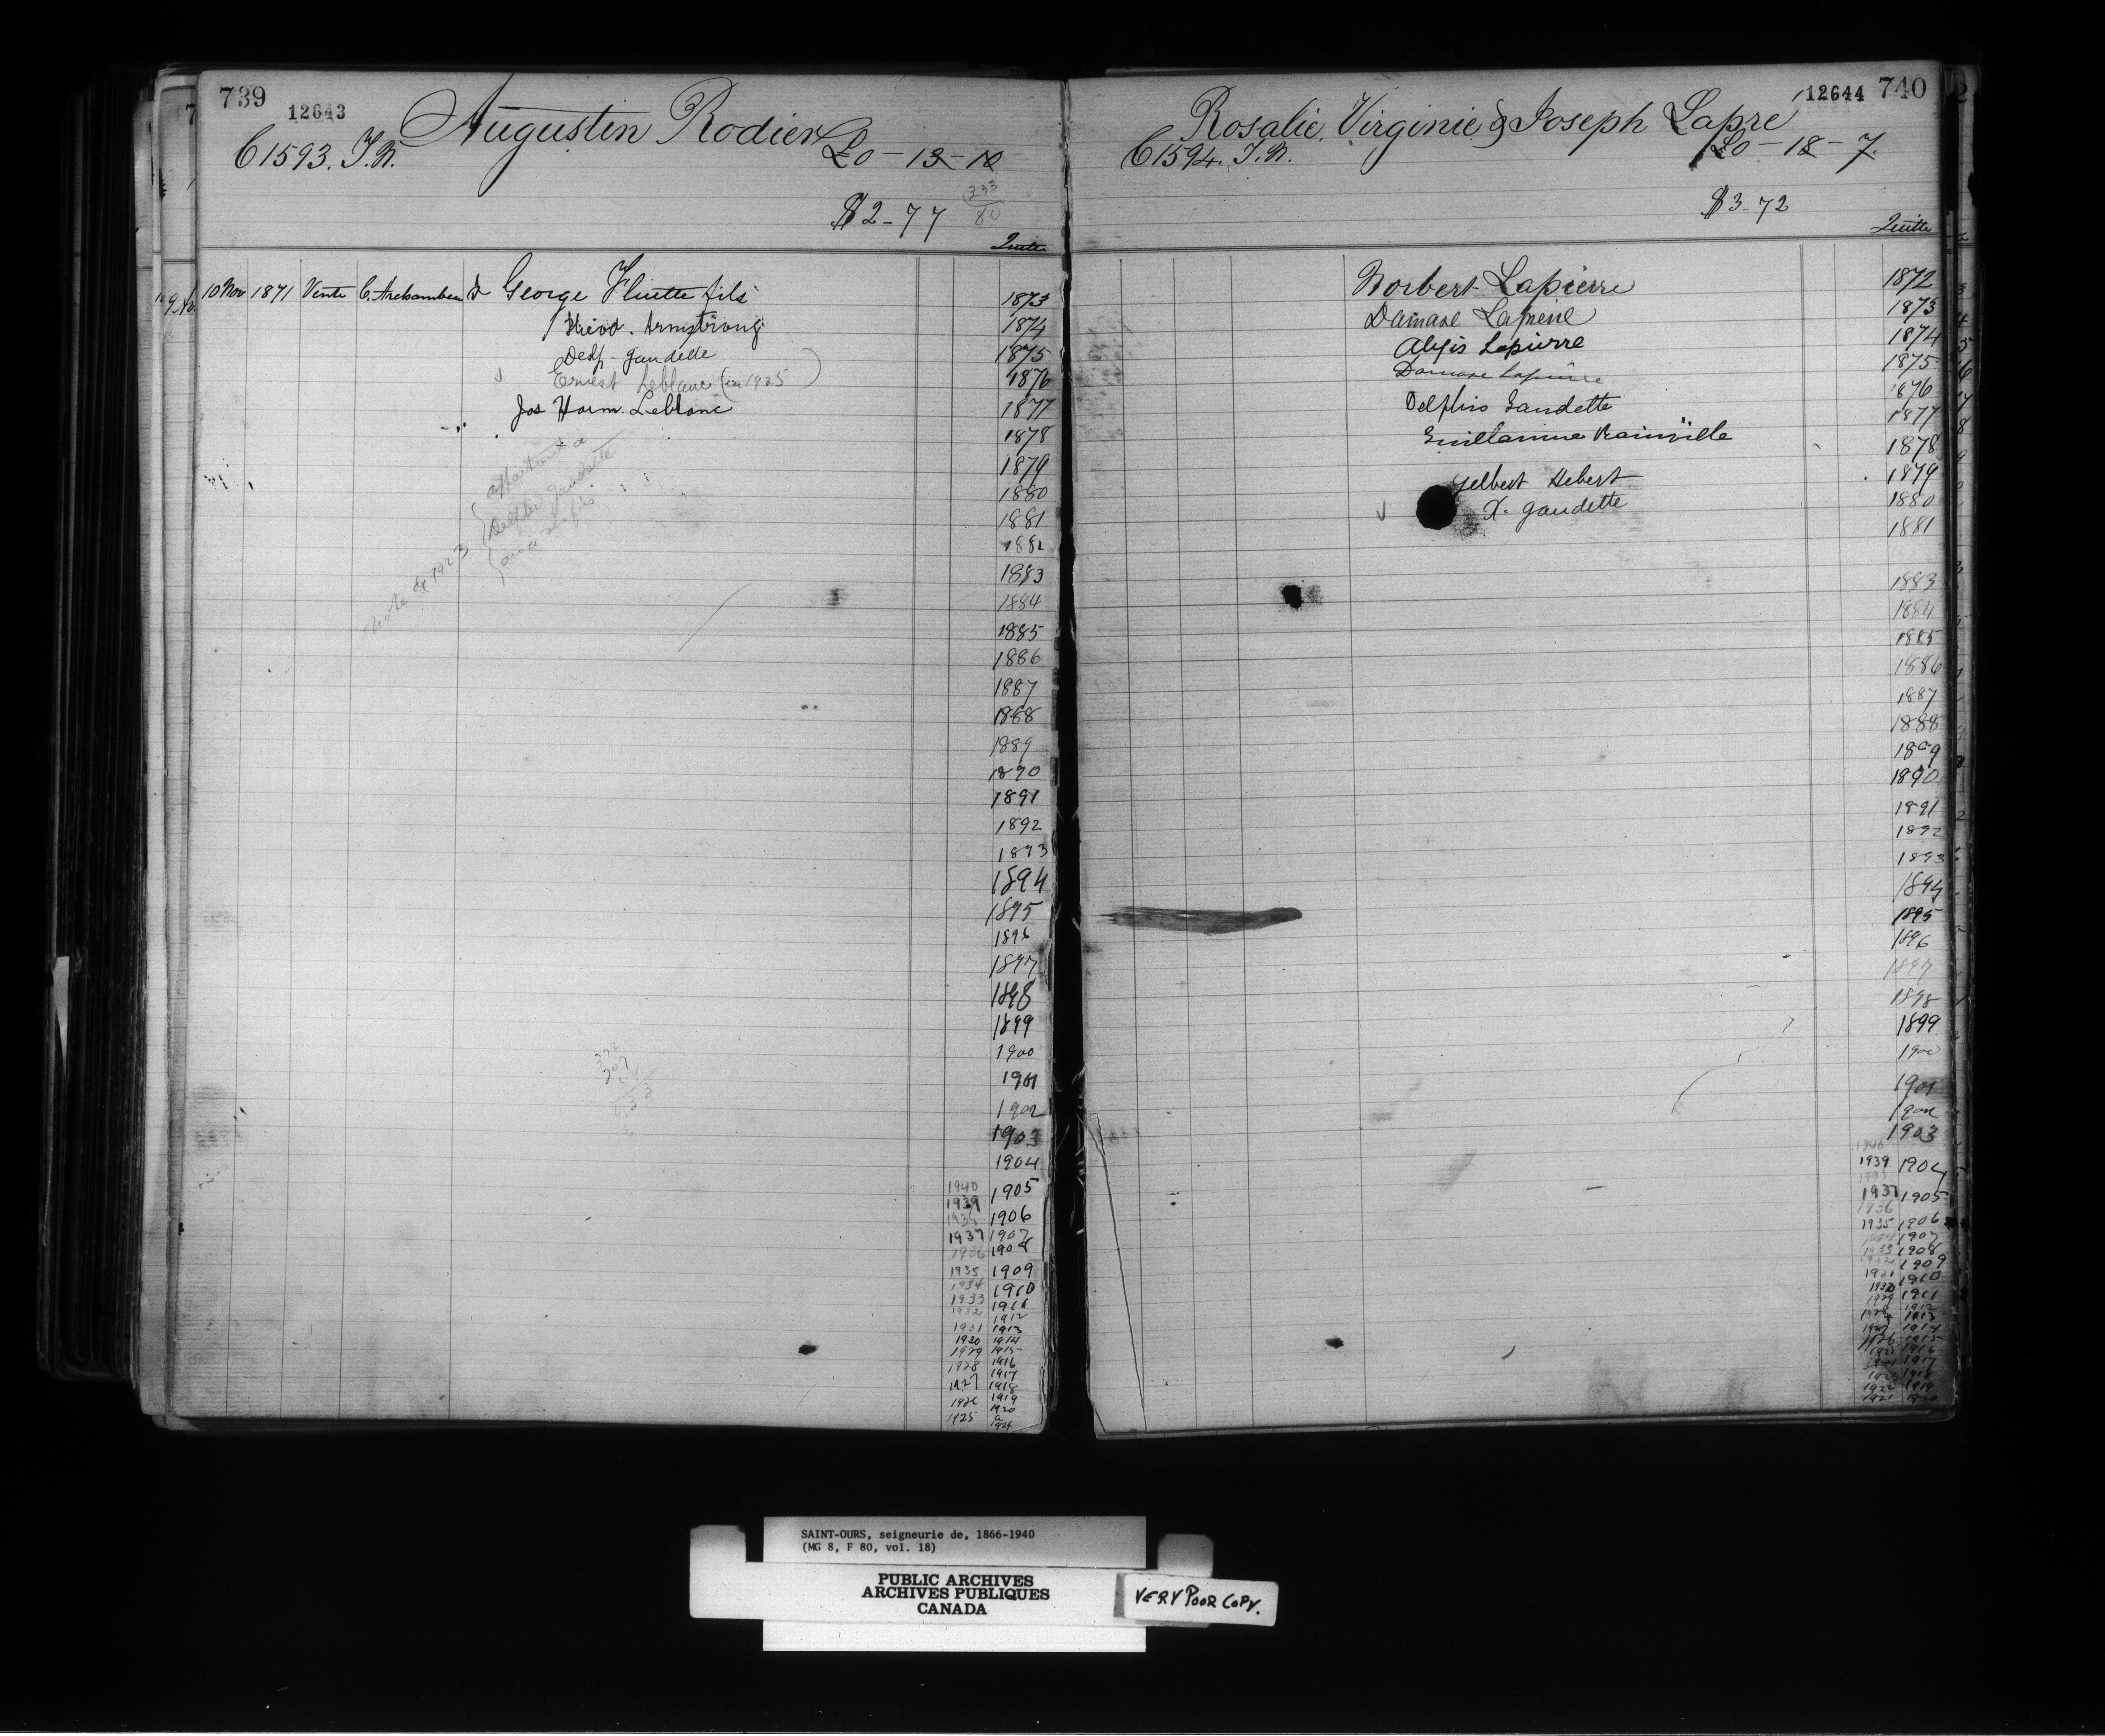 739
12643
Augustin Rodier
C1593. T.N.
£0-13-10
$2-77
333
80
Quitte
10 Nov 1871 Vente C. Archambeau à George Fluette fils
Armstrong
Delp. Gaudette
Ernest Leblanc (en 1925)
Jos Horm. Leblanc
note de 1923
appartient à
Delphis Gaudette
ou à ses fils
1873
1874
1875
1876
1877
1878
1879
1880
1881
1882
1883
1884
1885
1886
1887
1888
1889
1890
1891
1892
1893
1894
1895
1896
1897
1898
1899
1900
1901
1902
1903
1904
1940 1905
1939
1938 1906
1937 1907
1936 1908
1935 1909
1934 1910
1933 1911
1932 1912
1931 1913
1930 1914
1929 1915
1928 1916
1917
1927 1918
1926 1919
1920
1925 à
1924
12644 740
Rosalie, Virginie & Joseph Lapré
C1594. T.N.
£0-18-7
$3-72
Quitte
Norbert Lapierre
Damase Lapierre
Alexis Lapierre
Damase Lapierre
Delphis Gaudette
Guillaume Rainville
Gelbert Hebert
X. Gaudette
1872
1873
1874
1875
1876
1877
1878
1879
1880
1881
1883
1884
1885
1886
1887
1888
1889
1890
1891
1892
1893
1894
1895
1896
1897
1898
1899
1900
1901
1902
1903
1940
1939 1904
1937 1905
1936
1935 1906
1934 1907
1933 1908
1932 1909
1931 1910
1930 1911
1929 1912
1928 1913
1927 1914
1926 1915
1925 1916
1924 1917
1923 1918
1922 1919
1921 1920
SAINT-OURS, seigneurie de, 1866-1940
(MG 8, F 80, vol. 18)
PUBLIC ARCHIVES
ARCHIVES PUBLIQUES
CANADA
VERY POOR COPY.